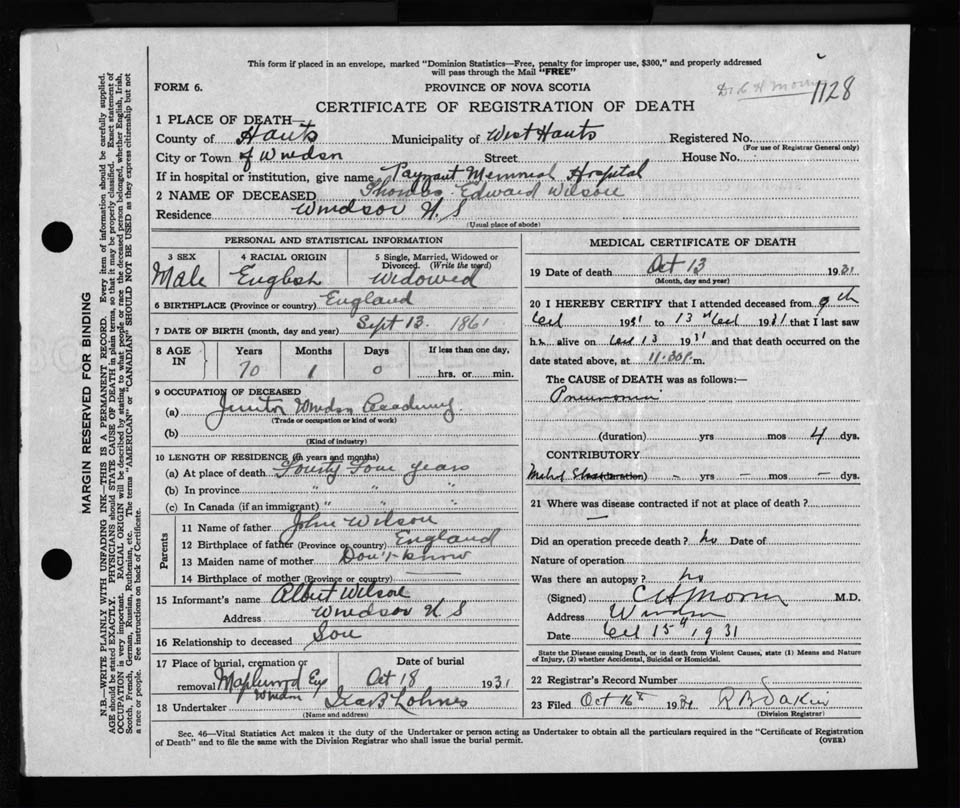 This form if placed in an envelope, marked "Dominion Statistics—Free, penalty for improper use, $300," and properly addressed
will pass through the Mail "FREE"
FORM 6.
PROVINCE OF NOVA SCOTIA
Dr C H Morris 1128
CERTIFICATE OF REGISTRATION OF DEATH
1 PLACE OF DEATH—
County of Hants Municipality of West Hants Registered No.
(For use of Registrar General only)
City or Town of Windsor Street House No.
If in hospital or institution, give name Payzant Memorial Hospital
2 NAME OF DECEASED Thomas Edward Wilson
Residence Windsor N.S
(Usual place of abode)
PERSONAL AND STATISTICAL INFORMATION
3 SEX 4 RACIAL ORIGIN 5 Single, Married, Widowed or
Divorced. (Write the word)
Male English Widowed
6 BIRTHPLACE (Province or country) England
7 DATE OF BIRTH (month, day and year) Sept 13. 1861
8 AGE IN Years Months Days If less than one day,
70 1 0 hrs. or min.
9 OCCUPATION OF DECEASED
(a) Janitor Windsor Academy
(Trade or occupation or kind of work)
(b)
(Kind of industry)
10 LENGTH OF RESIDENCE (in years and months)
(a) At place of death Fourty Four years
(b) In province " " "
(c) In Canada (if an immigrant) " " "
Parents
11 Name of father John Wilson
12 Birthplace of father (Province or country) England
13 Maiden name of mother Don't know
14 Birthplace of mother (Province or country) —
15 Informant's name Albert Wilson
Address Windsor N S
16 Relationship to deceased Son
17 Place of burial, cremation or Date of burial
removal Maplewood Windsor Oct 18 1931
18 Undertaker Lohnes
(Name and address)
MEDICAL CERTIFICATE OF DEATH
19 Date of death Oct 13 1931
(Month, day and year)
20 I HEREBY CERTIFY that I attended deceased from 9th
Oct 1931 to 13th Oct 1931 that I last saw
h alive on Oct 13 1931 and that death occurred on the
date stated above, at 11.30 P.m.
The CAUSE of DEATH was as follows:—
Pneumonia
(duration) — yrs — mos 4 dys.
CONTRIBUTORY
(duration) — yrs — mos — dys.
21 Where was disease contracted if not at place of death?
—
Did an operation precede death? no Date of
Nature of operation
Was there an autopsy? no
(Signed) C H Morris M.D.
Address Windsor
Date Oct 15th 1931
State the Disease causing Death, or in death from Violent Causes, state (1) Means and Nature
of Injury, (2) whether Accidental, Suicidal or Homicidal.
22 Registrar's Record Number
23 Filed Oct 16th 1931 R B Dakin
(Division Registrar)
Sec. 46—Vital Statistics Act makes it the duty of the Undertaker or person acting as Undertaker to obtain all the particulars required in the "Certificate of Registration
of Death" and to file the same with the Division Registrar who shall issue the burial permit. (OVER)
MARGIN RESERVED FOR BINDING
N.B.—WRITE PLAINLY WITH UNFADING INK—THIS IS A PERMANENT RECORD. Every item of information should be carefully supplied.
AGE should be stated EXACTLY. PHYSICIANS should STATE CAUSE OF DEATH in plain terms, so that it may be properly classified. Exact statement of
OCCUPATION is very important. RACIAL ORIGIN will be described by stating to what people or race the deceased person belonged, whether English, Irish,
Scotch, French, German, Russian, Ruthenian, etc. The terms "AMERICAN" or "CANADIAN" SHOULD NOT BE USED as they express citizenship but not
a race or people. See instructions on back of Certificate.